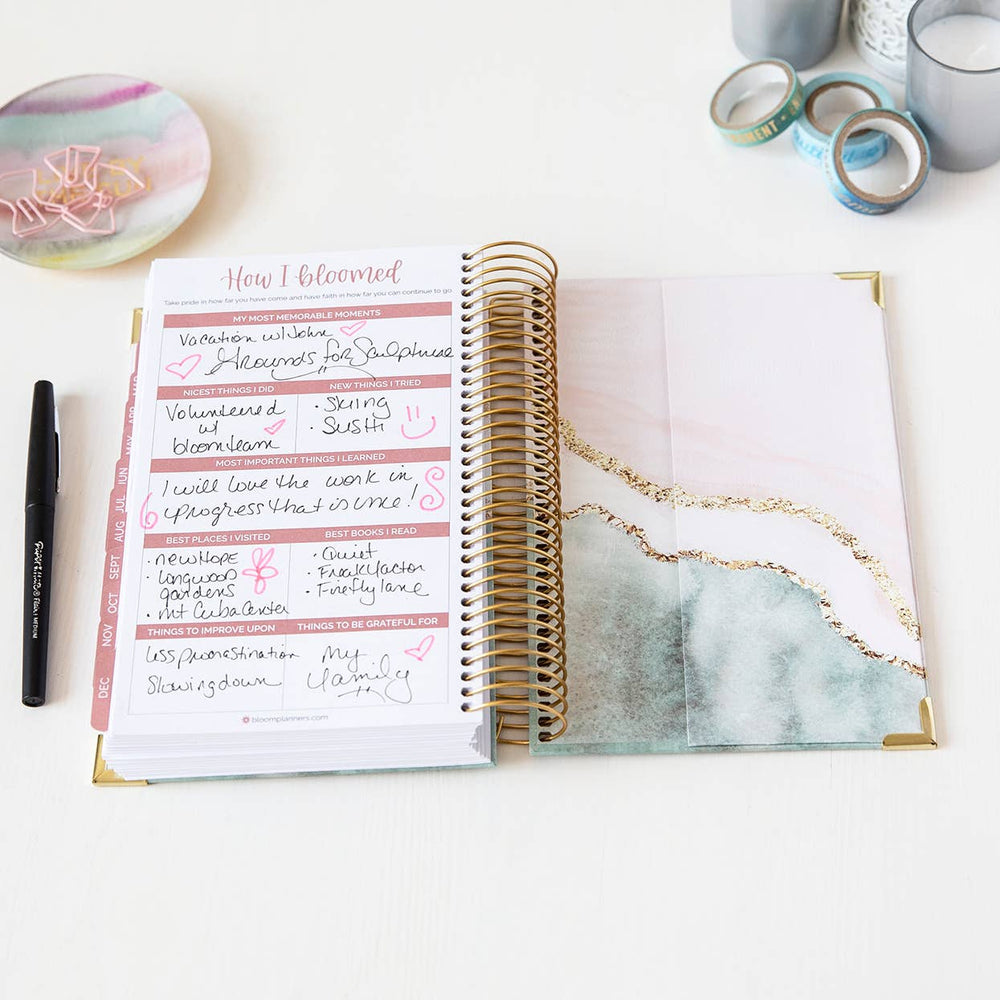 How I bloomed
Take pride in how far you have come and have faith in how far you can continue to go.
MY MOST MEMORABLE MOMENTS
Vacation w/John
Grounds for Sculpture
NICEST THINGS I DID
Volunteered
w/
bloom team
NEW THINGS I TRIED
• Skiing
• Sushi
MOST IMPORTANT THINGS I LEARNED
I will love the work in
progress that is me!
BEST PLACES I VISITED
• new HOPE
• Longwood
gardens
• Mt Cuba Center
BEST BOOKS I READ
• Quiet
• Freakyfactor
• Firefly lane
THINGS TO IMPROVE UPON
less procrastination
Slowing down
THINGS TO BE GRATEFUL FOR
My
family
bloomplanners.com
MAY
JUN
JUL
AUG
SEPT
OCT
NOV
DEC
Paper Mate® FLAIR MEDIUM